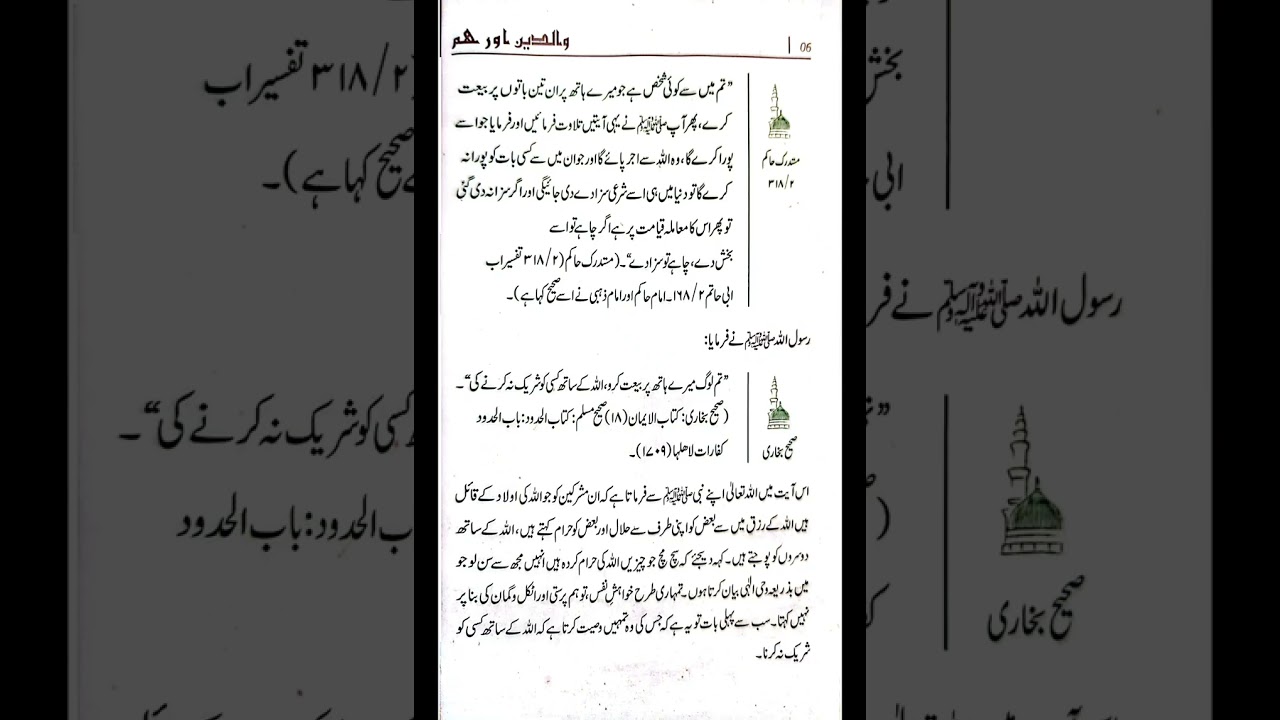 06
والدین اور ہم
”تم میں سے کوئی شخص ہے جو میرے ہاتھ پر ان تین باتوں پر بیعت
کرے، پھر آپ ﷺ نے یہی آیتیں تلاوت فرمائیں اور فرمایا جو اسے
پورا کرے گا، وہ اللہ سے اجر پائے گا اور جو ان میں سے کسی بات کو پورا نہ
کرے گا تو دنیا میں ہی اسے شرعی سزا دے دی جائیگی اور اگر سزا نہ دی گئی
تو پھر اس کا معاملہ قیامت پر ہے اگر چاہے تو اسے
بخش دے، چاہے تو سزا دے“۔ (متدرک حاکم (۳۱۸/۲ تفسیر اب
ابی حاتم ۱۶۸/۲۔ امام حاکم اور امام ذہبی نے اسے صحیح کہا ہے)۔
متدرک حاکم
۳۱۸/۲
رسول اللہ ﷺ نے فرمایا:
”تم لوگ میرے ہاتھ پر بیعت کرو، اللہ کے ساتھ کسی کو شریک نہ کرنے کی“۔
(صحیح بخاری: کتاب الایمان (۱۸) صحیح مسلم: کتاب الحدود: باب الحدود
کفارات لاھلہا (۱۷۰۹)۔
صحیح بخاری
اس آیت میں اللہ تعالیٰ اپنے نبی ﷺ سے فرماتا ہے کہ ان مشرکین کو جو اللہ کی اولاد کے قائل
ہیں اللہ کے رزق میں سے بعض کو اپنی طرف سے حلال اور بعض کو حرام کہتے ہیں، اللہ کے ساتھ
دوسروں کو پوجتے ہیں۔ کہہ دیجئے کہ سچ مچ جو چیزیں اللہ کی حرام کردہ ہیں انہیں مجھ سے سن لو جو
میں بذریعہ وحی الٰہی بیان کرتا ہوں۔ تمہاری طرح خواہش نفس، توہم پرستی اور اٹکل و گمان کی بنا پر
نہیں کہتا۔ سب سے پہلی بات تو یہ ہے کہ جس کی وہ تمہیں وصیت کرتا ہے کہ اللہ کے ساتھ کسی کو
شریک نہ کرنا۔